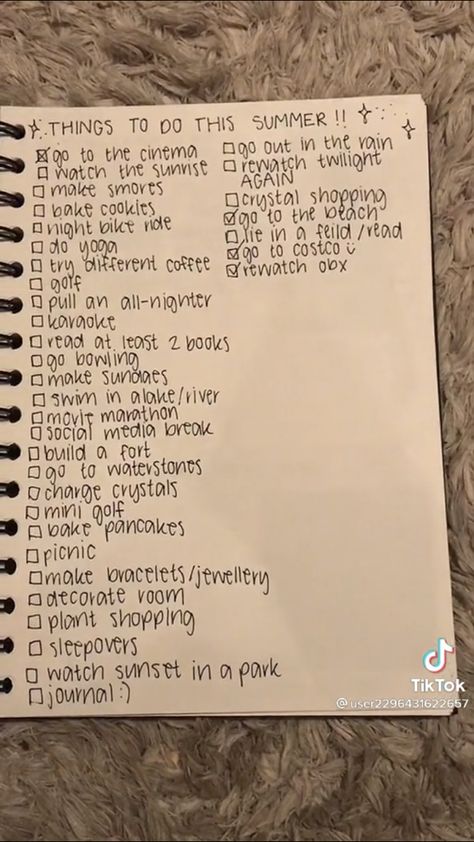 THINGS TO DO THIS SUMMER !!
go to the cinema
watch the sunrise
make smores
bake cookies
night bike ride
do yoga
try different coffee
golf
pull an all-nighter
karaoke
read at least 2 books
go bowling
make sundaes
swim in a lake/river
movie marathon
social media break
build a fort
go to waterstones
charge crystals
mini golf
bake pancakes
picnic
make bracelets/jewellery
decorate room
plant shopping
sleepovers
watch sunset in a park
journal:)
go out in the rain
rewatch twilight
AGAIN
crystal shopping
go to the beach
lie in a feild/read
go to costco
rewatch obx
TikTok
@user2296431622657